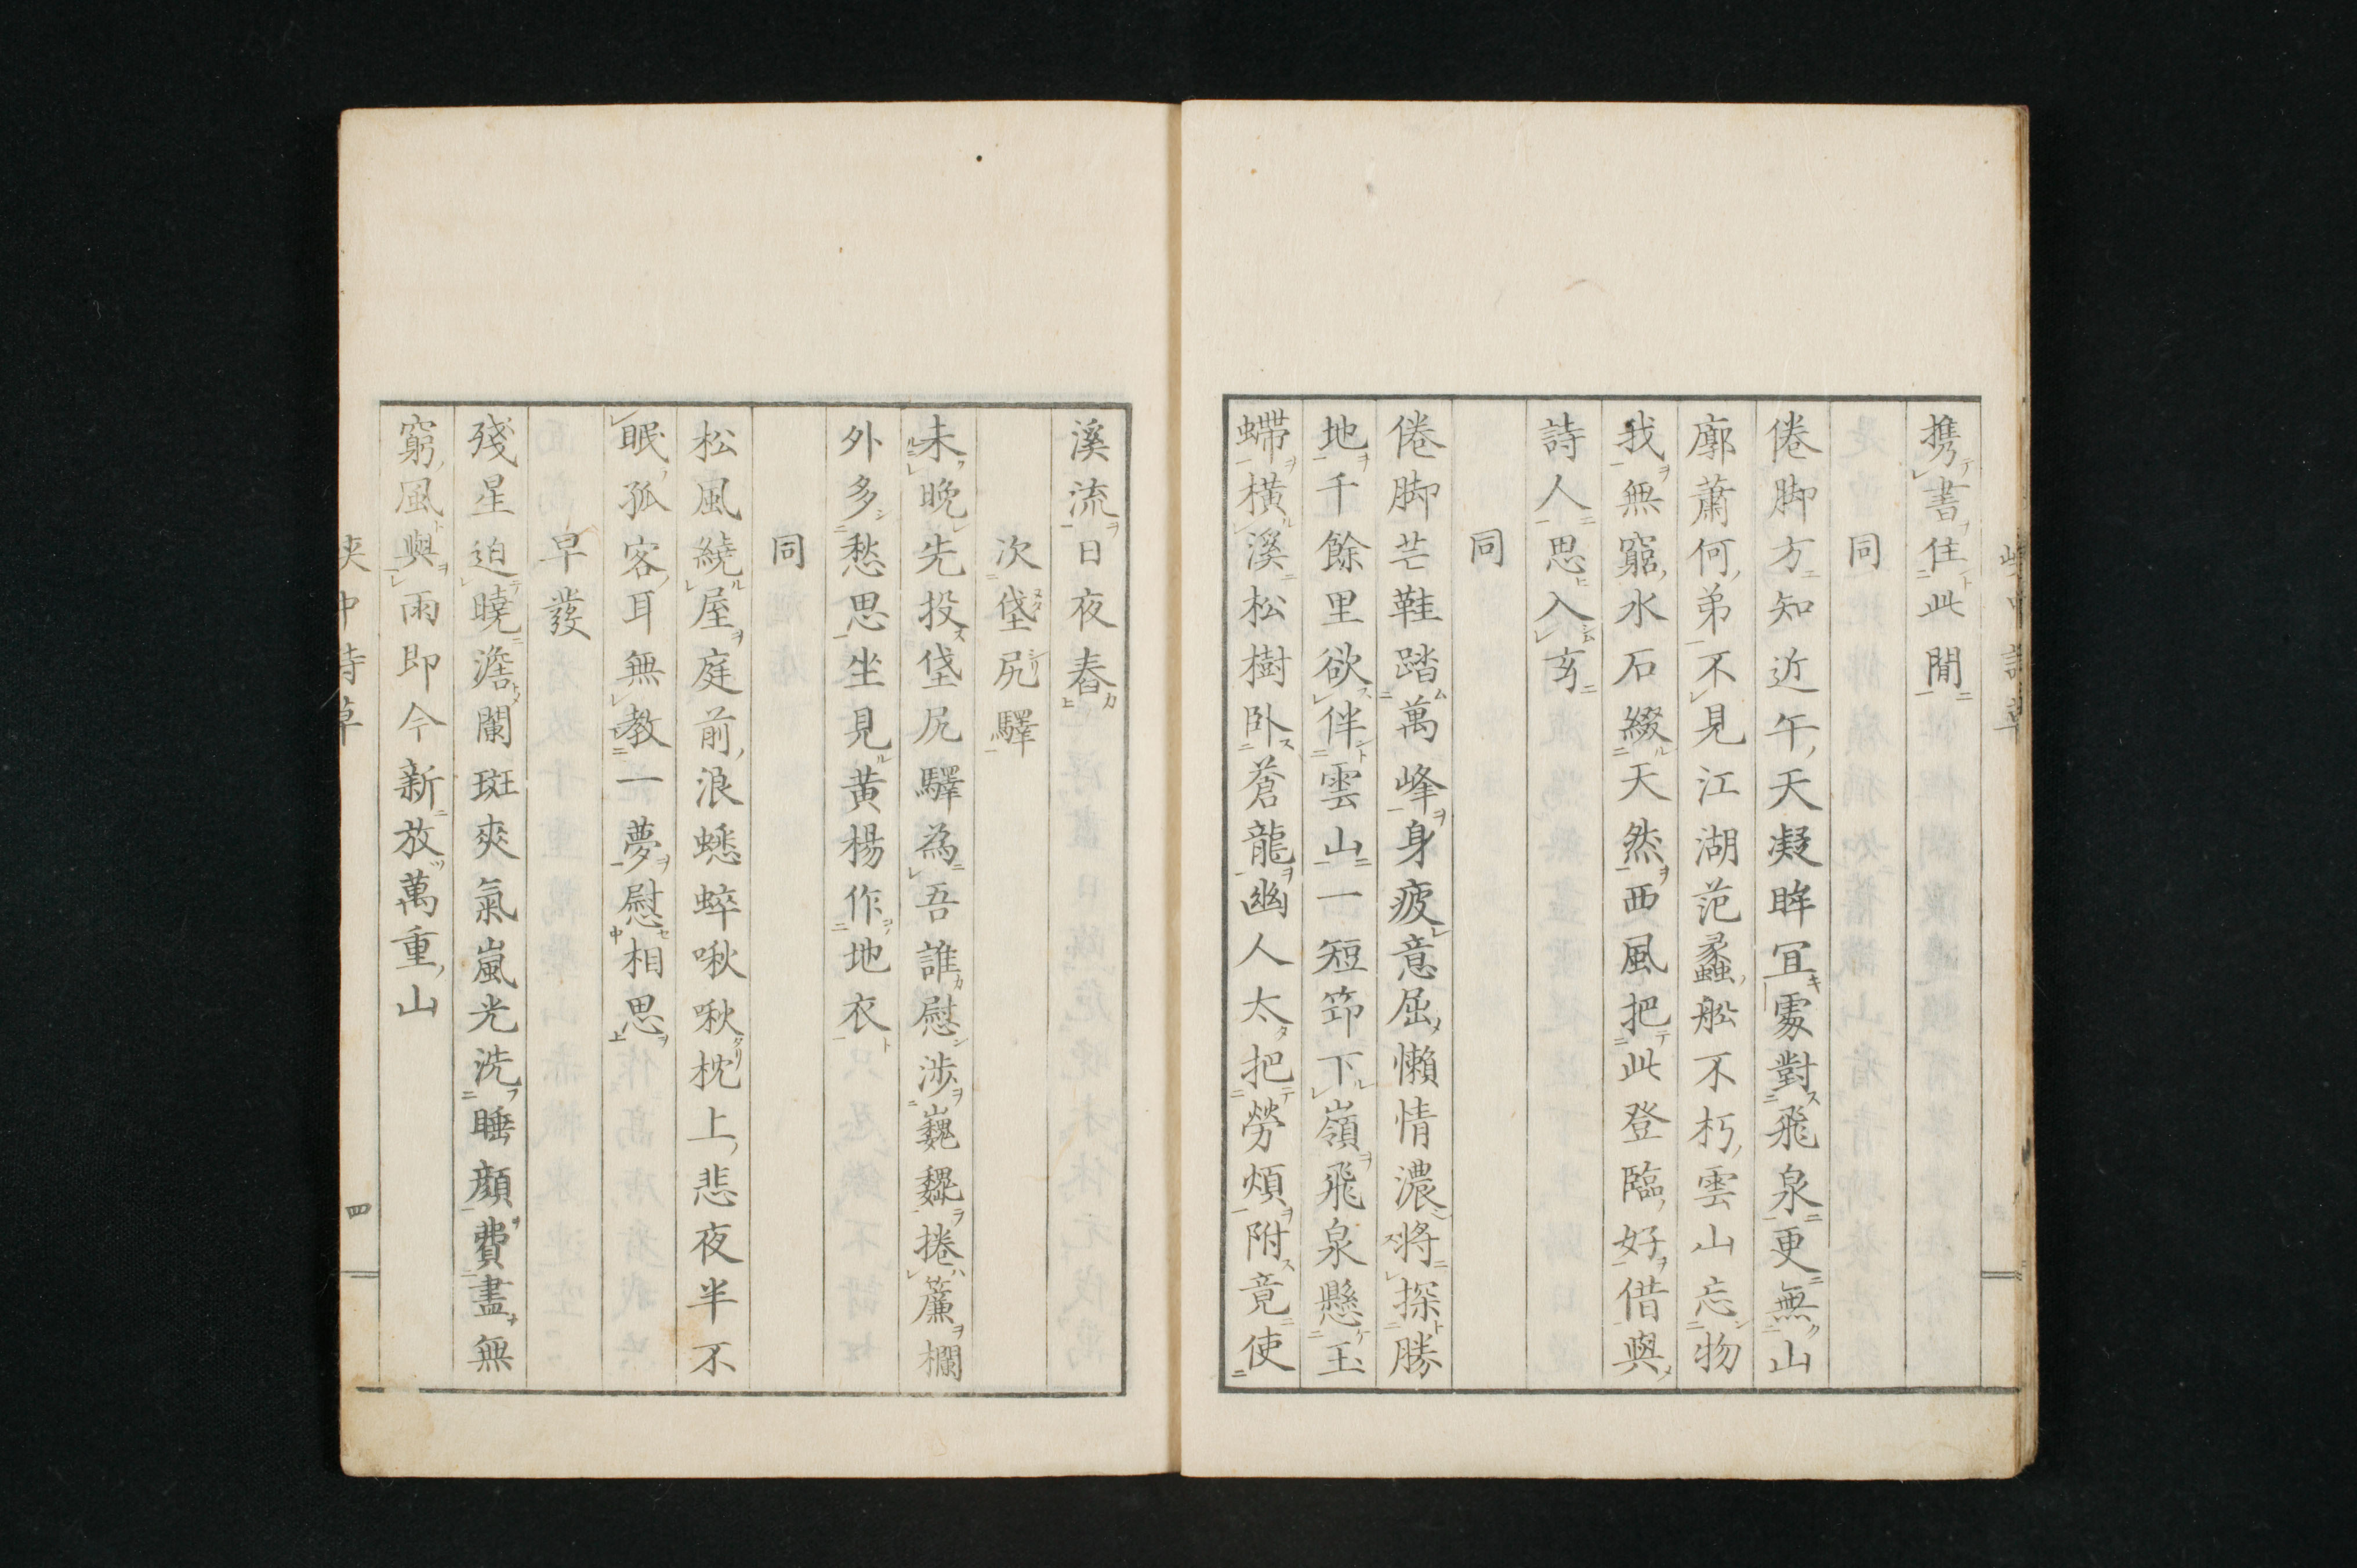 携書住此間
同
倦脚方知近午天凝眸冝處對飛泉更無山
廓蕭何弟不見江湖范蠡船不朽雲山忘物
我無窮水石綴天然西風把此登臨好借與
詩人思入玄
同
倦脚芒鞋踏萬峰身疲意屈懶情濃將探勝
地千餘里欲伴雲山一短笻下嶺飛泉懸玉
螮橫溪松樹卧蒼龍幽人太把勞煩附竟使
溪流日夜舂
次垈尻驛
未晚先投垈尻驛為吾誰慰涉巍巍捲簾欄
外多愁思坐見黃楊作地衣
同
松風繞屋庭前浪蟋蟀啾啾枕上悲夜半不
眠孤客耳無教一夢慰相思
早發
殘星迫曉澹闌斑爽氣嵐光洗睡顏費盡無
窮風與雨即今新放萬重山
峽中詩草
四